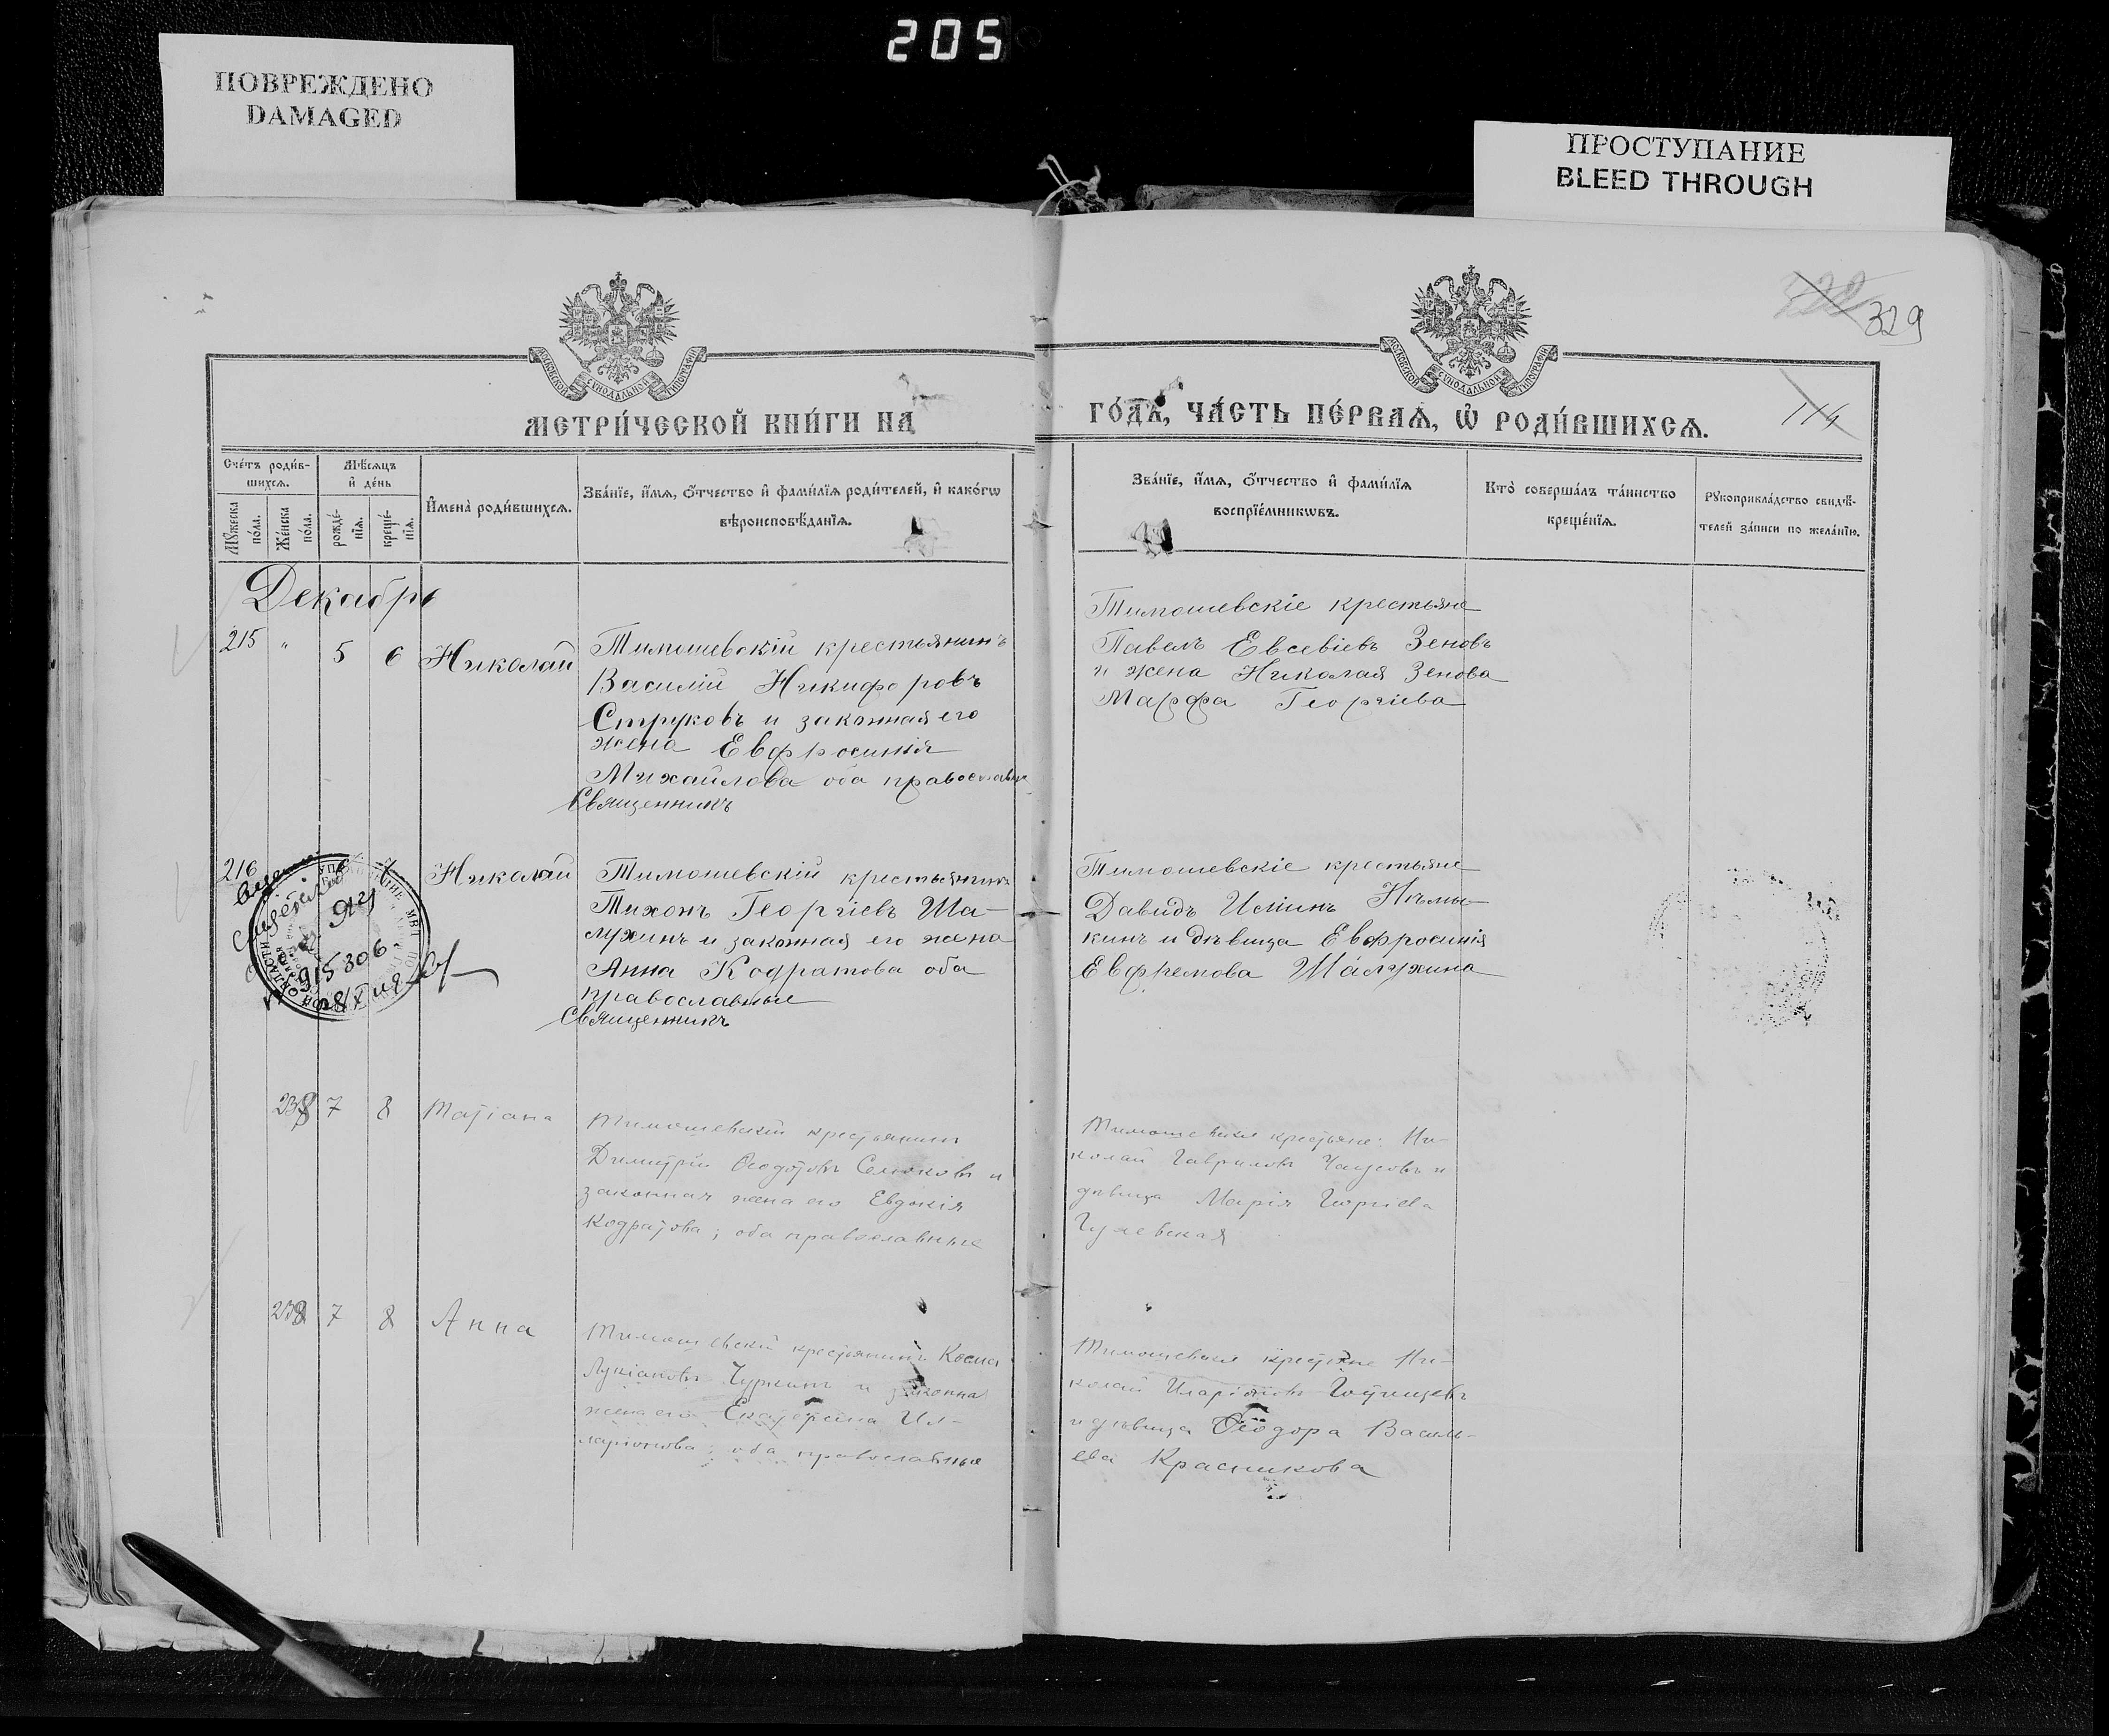 205
ПОВРЕЖДЕНО
DAMAGED
ПРОСТУПАНИЕ
BLEED THROUGH
329
114
МОСКОВСКОЙ СѴНОДАЛЬНОЙ ТИПОГРАФІИ
МОСКОВСКОЙ СѴНОДАЛЬНОЙ ТИПОГРАФІИ
МЕТРИ́ЧЕСКОЙ КНИ́ГИ НА
ГО́ДЪ, ЧА́СТЬ ПЕ́РВАѦ, Ѡ҆ РОДИ́ВШИХСѦ.
Сче́тъ роди́в-
шихсѧ.
Мꙋжеска по́ла.
Же́нска по́ла.
Мѣ́сѧцъ
и҆ де́нь
рожде́-
нїѧ.
креще́-
нїѧ.
И҆мена̀ роди́вшихсѧ.
Зва́нїе, и҆́мѧ, ѻ҆́тчество и҆ фами́лїѧ роди́телей, и҆ како́гѡ
вѣроисповѣ́данїѧ.
Зва́нїе, и҆́мѧ, ѻ҆́тчество и҆ фами́лїѧ
воспрїе́мникѡвъ.
Кто̀ соверша́лъ та́инство
креще́нїѧ.
Рꙋкоприкла́дство свидѣ́-
телей за́писи по жела́нїю.
Декабрь
215 " 5 6 Николай
Тимошевскій крестьянинъ
Василій Никифоровъ
Струковъ и законная его
жена Евфросинія
Михайлова оба православные
Священникъ
Тимошевскіе крестьяне
Павелъ Евсевіевъ Зеновъ
и жена Николая Зенова
Марфа Георгіева
216 Николай
Тимошевскій крестьянинъ
Тихонъ Георгіевъ Ша-
лужинъ и законная его жена
Анна Кодратова оба
православные
Священникъ
915306
Тимошевскіе крестьяне
Давидъ Иліинъ Нѣмы-
кинъ и дѣвица Евфросинія
Евфремова Шалужина
7 8 Татіана
Тимошевскій крестьянинъ
Димитрій Ѳеодотовъ Селюковъ и
законная жена его Евдокія
Кодратова; оба православные
Тимошевскіе крестьяне: Ни-
колай Гавриловъ и
дѣвица Марія Георгіева
7 8 Анна
Тимошевскій крестьянинъ Косма
Лукіановъ Чуркинъ и законная
жена его Екатерина Ил-
ларіонова; оба православные
Тимошевскіе крестьяне Ни-
колай Иларіоновъ
и дѣвица Ѳеодора Василь-
ева Красникова